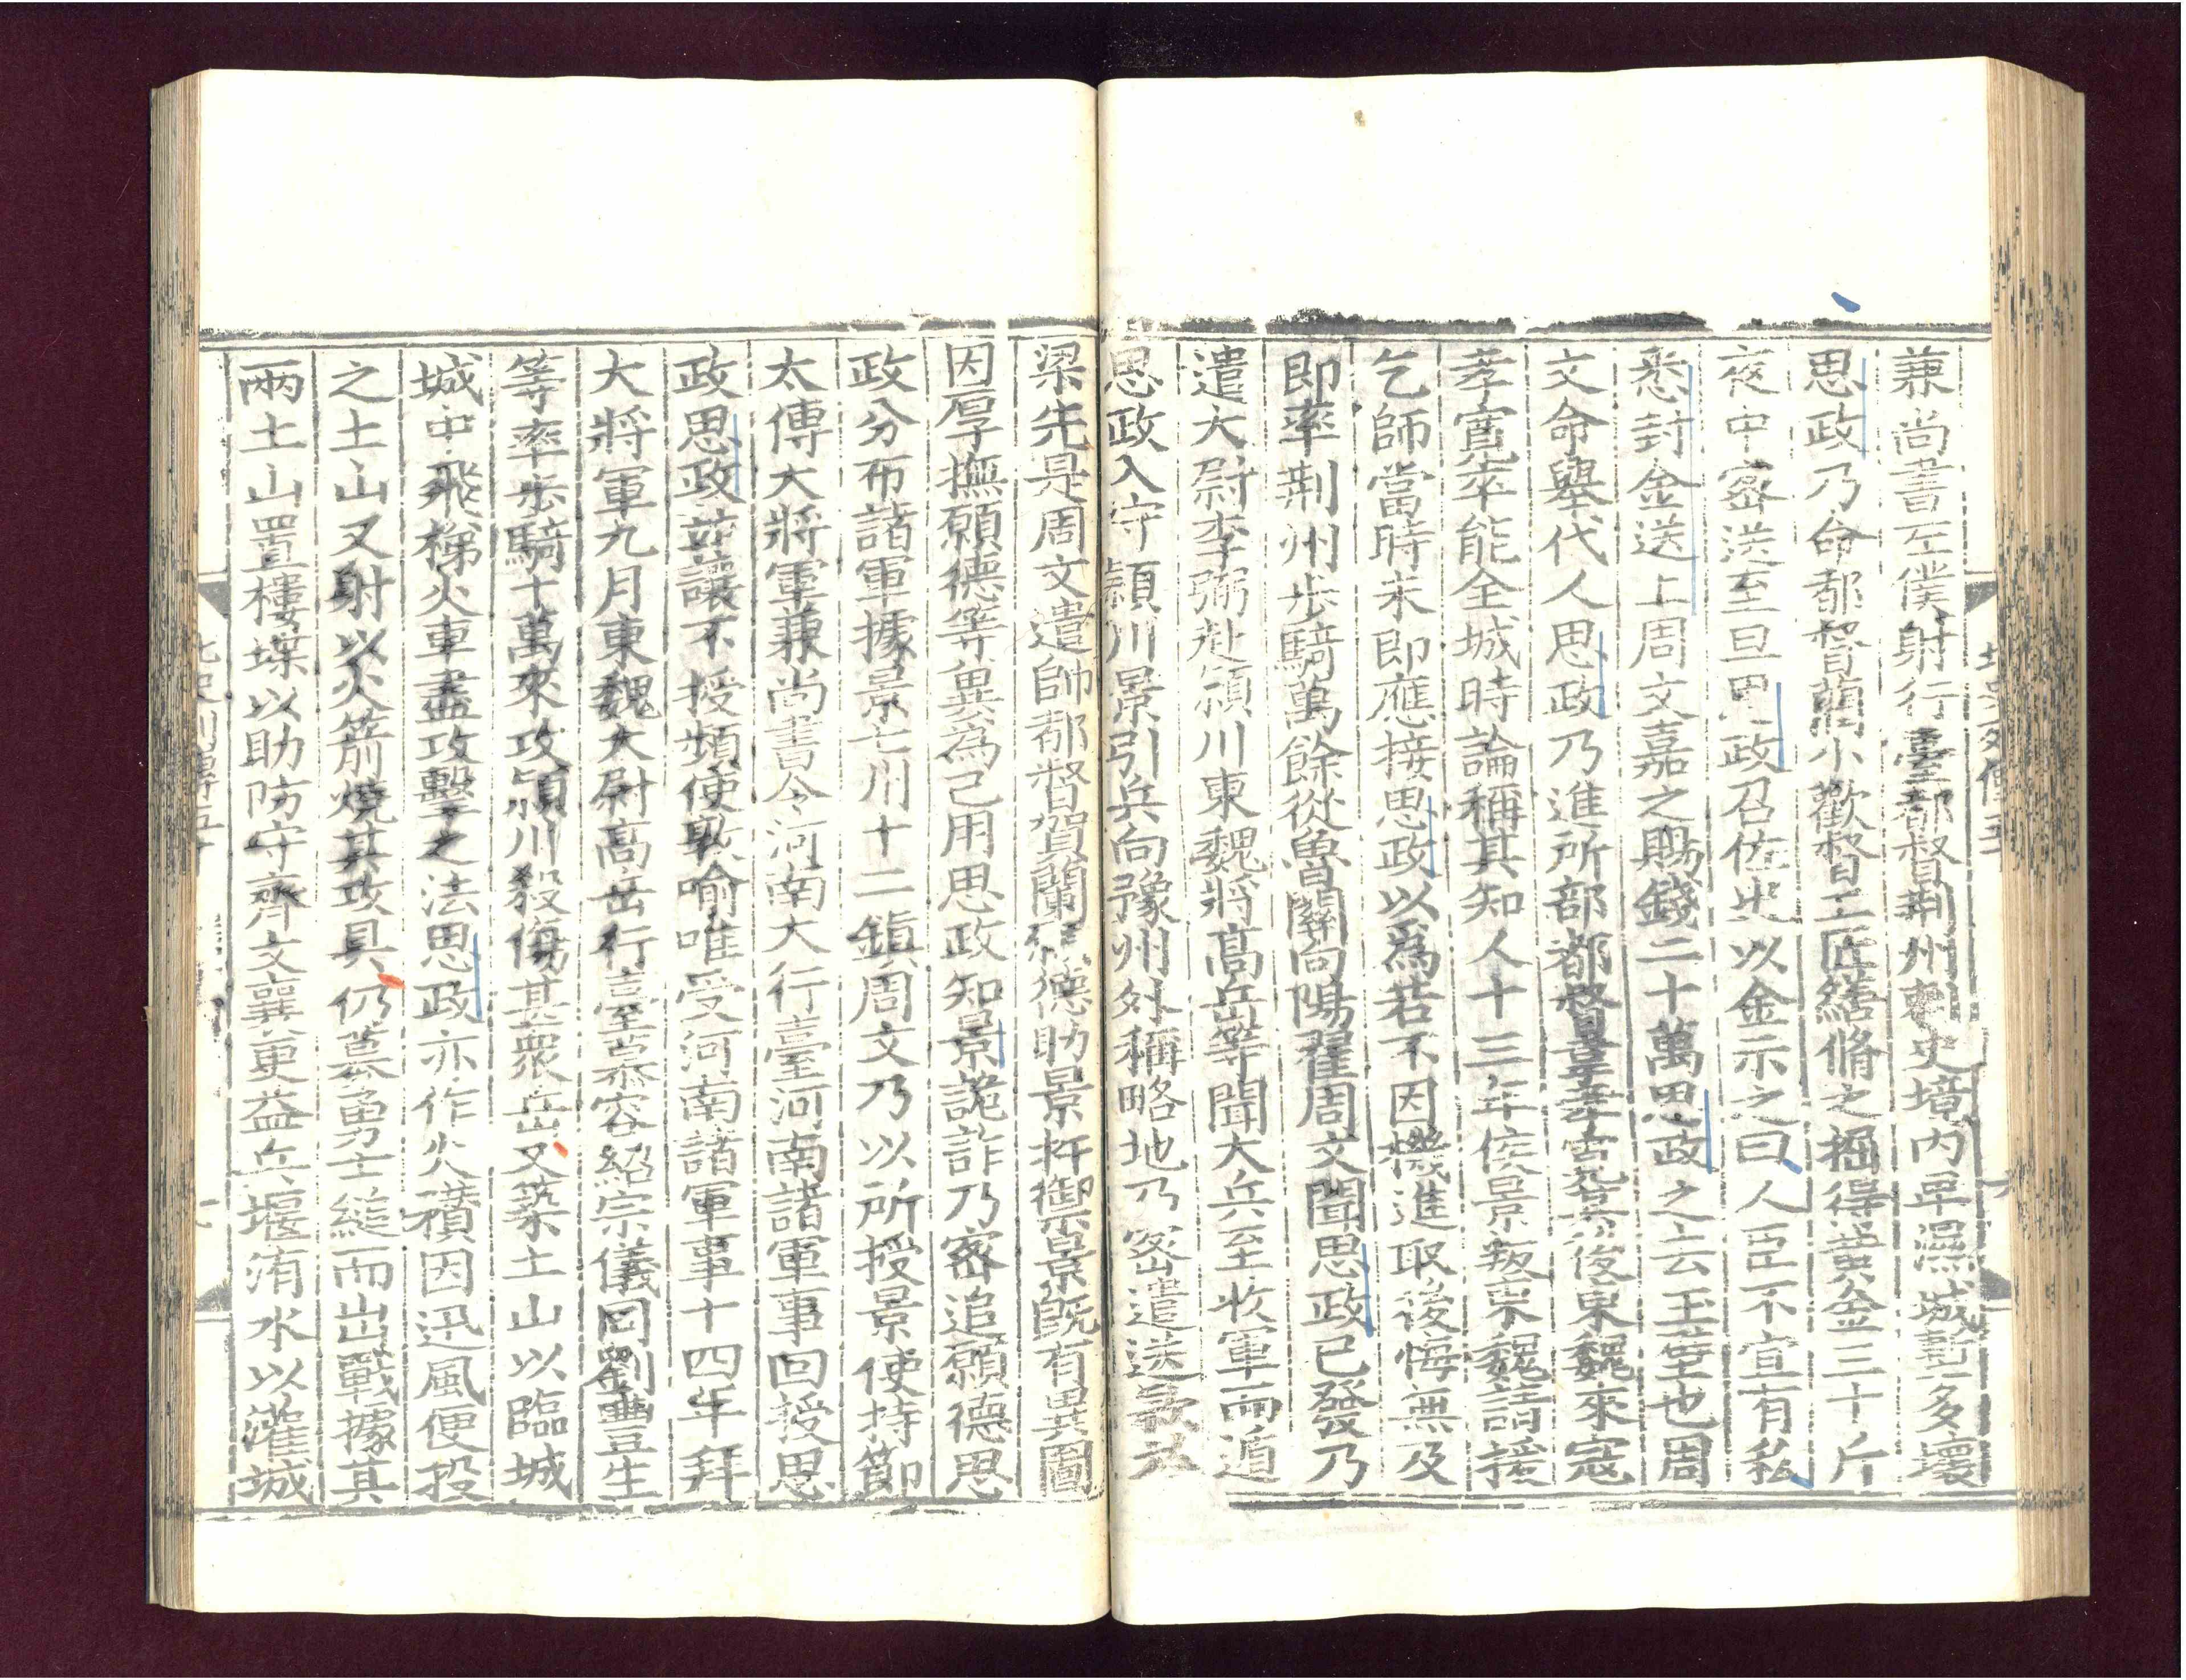 兼尚書左僕射行臺都督荆州刺史境内卑濕城塹多壞
思政乃命都督藺小歡督工匠繕脩之掘得黃金三十斤
夜中密送至旦思政召佐史以金示之曰人臣不宜有私
悉封金送上周文嘉之賜錢二十萬思政之去玉壁也周
文命舉代人思政乃進所部都督韋孝寬其後東魏來寇
孝寬卒能全城時論稱其知人十三年侯景叛東魏請援
乞師當時未即應接思政以爲若不因機進取後悔無及
即率荆州步騎萬餘從魯關向陽翟周文聞思政已發乃
遣大尉李弼赴潁川東魏將高岳等聞大兵至收軍而遁
思政入守潁川景引兵向豫州外稱略地乃密遣送款於
梁先是周文遣帥都督賀蘭願德助景扞禦景旣有異圖
因厚撫願德等兾爲己用思政知景詭詐乃密追願德思
政分布諸軍據景七州十二鎮周文乃以所授景使持節
太傅大將軍兼尚書令河南大行臺河南諸軍事回授思
政思政並讓不授頻使敦喻唯受河南諸軍事十四年拜
大將軍九月東魏太尉高岳行臺慕容紹宗儀同劉豐生
等率步騎十萬來攻潁川殺傷甚衆岳又築土山以臨城
城中飛梯火車盡攻擊之法思政亦作火䂎因迅風便投
之土山又射以火箭燒其攻具仍募勇士縋而出戰據其
兩土山置樓堞以助防守齊文襄更益兵堰洧水以灌城
北史列傳五十